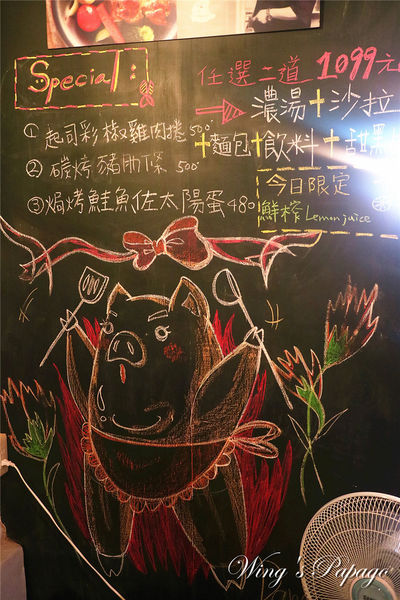 Special:
① 起司彩椒雞肉捲 500
② 碳烤豬肋條 500
③ 焗烤鮭魚佐太陽蛋 480
任選二道 1099元
濃湯+沙拉
+麵包+飲料+甜
今日限定
鮮榨 Lemon juice
Wing's Papago